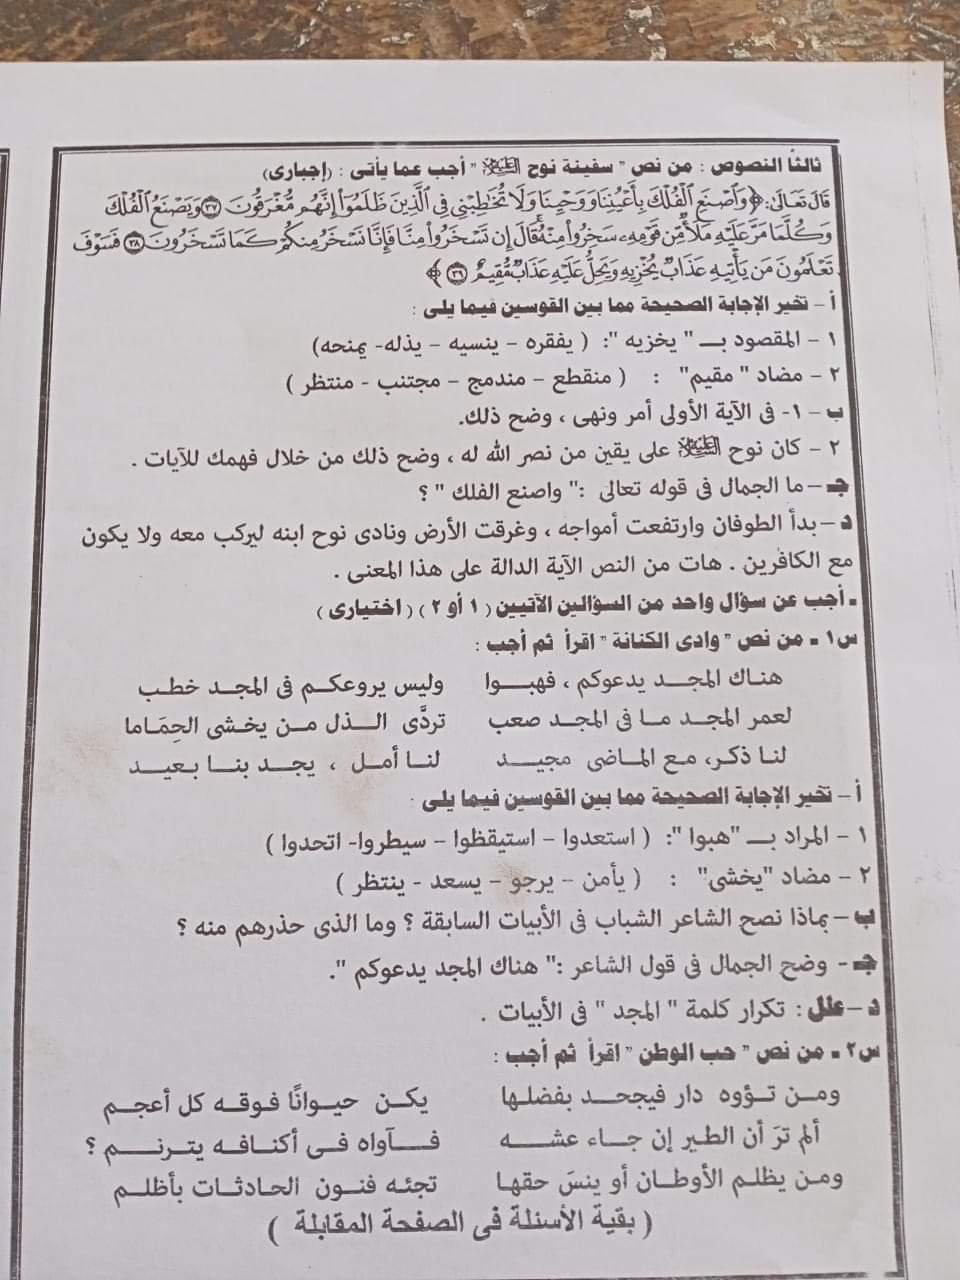 ثالثاً النصوص : من نص " سفينة نوح عليه السلام " أجب عما يأتى : (إجبارى)
قَالَ تَعَالَى: ﴿وَٱصۡنَعِ ٱلۡفُلۡكَ بِأَعۡيُنِنَا وَوَحۡيِنَا وَلَا تُخَٰطِبۡنِي فِي ٱلَّذِينَ ظَلَمُوٓاْ إِنَّهُم مُّغۡرَقُونَ ٣٧ وَيَصۡنَعُ ٱلۡفُلۡكَ
وَكُلَّمَا مَرَّ عَلَيۡهِ مَلَأٞ مِّن قَوۡمِهِۦ سَخِرُواْ مِنۡهُۚ قَالَ إِن تَسۡخَرُواْ مِنَّا فَإِنَّا نَسۡخَرُ مِنكُمۡ كَمَا تَسۡخَرُونَ ٣٨ فَسَوۡفَ
تَعۡلَمُونَ مَن يَأۡتِيهِ عَذَابٞ يُخۡزِيهِ وَيَحِلُّ عَلَيۡهِ عَذَابٞ مُّقِيمٌ ٣٩﴾
أ – تخير الإجابة الصحيحة مما بين القوسين فيما يلى :
١ – المقصود بـ " يخزيه ": ( يفقره – ينسيه – يذله- يمنحه)
٢ – مضاد " مقيم" : ( منقطع – مندمج – مجتنب – منتظر )
ب – ١- فى الآية الأولى أمر ونهى ، وضح ذلك.
٢ – كان نوح عليه السلام على يقين من نصر الله له ، وضح ذلك من خلال فهمك للآيات .
جـ – ما الجمال فى قوله تعالى :" واصنع الفلك " ؟
د – بدأ الطوفان وارتفعت أمواجه ، وغرقت الأرض ونادى نوح ابنه ليركب معه ولا يكون
مع الكافرين . هات من النص الآية الدالة على هذا المعنى .
▪ أجب عن سؤال واحد من السؤالين الآتيين ( ١ أو ٢ ) ( اختيارى )
س١ ▪ من نص " وادى الكنانة " اقرأ ثم أجب :
هناك المجد يدعوكم ، فهبوا وليس يروعكم فى المجد خطب
لعمر المجد ما فى المجد صعب تردَّى الذل من يخشى الحِمَاما
لنا ذكر، مع الماضى مجيد لنا أمل ، يجد بنا بعيد
أ – تخير الإجابة الصحيحة مما بين القوسين فيما يلى :
١ – المراد بـ "هبوا ": ( استعدوا – استيقظوا – سيطروا- اتحدوا )
٢ – مضاد "يخشى" : ( يأمن – يرجو – يسعد - ينتظر )
ب – بماذا نصح الشاعر الشباب فى الأبيات السابقة ؟ وما الذى حذرهم منه ؟
جـ - وضح الجمال فى قول الشاعر :" هناك المجد يدعوكم ".
د – علل : تكرار كلمة " المجد " فى الأبيات .
س٢ ▪ من نص " حب الوطن " اقرأ ثم أجب :
ومن تؤوه دار فيجحد بفضلها يكن حيوانًا فوقه كل أعجم
ألم ترَ أن الطير إن جاء عشه فآواه فى أكنافه يترنم ؟
ومن يظلم الأوطان أو ينسَ حقها تجئه فنون الحادثات بأظلم
( بقية الأسئلة فى الصفحة المقابلة )